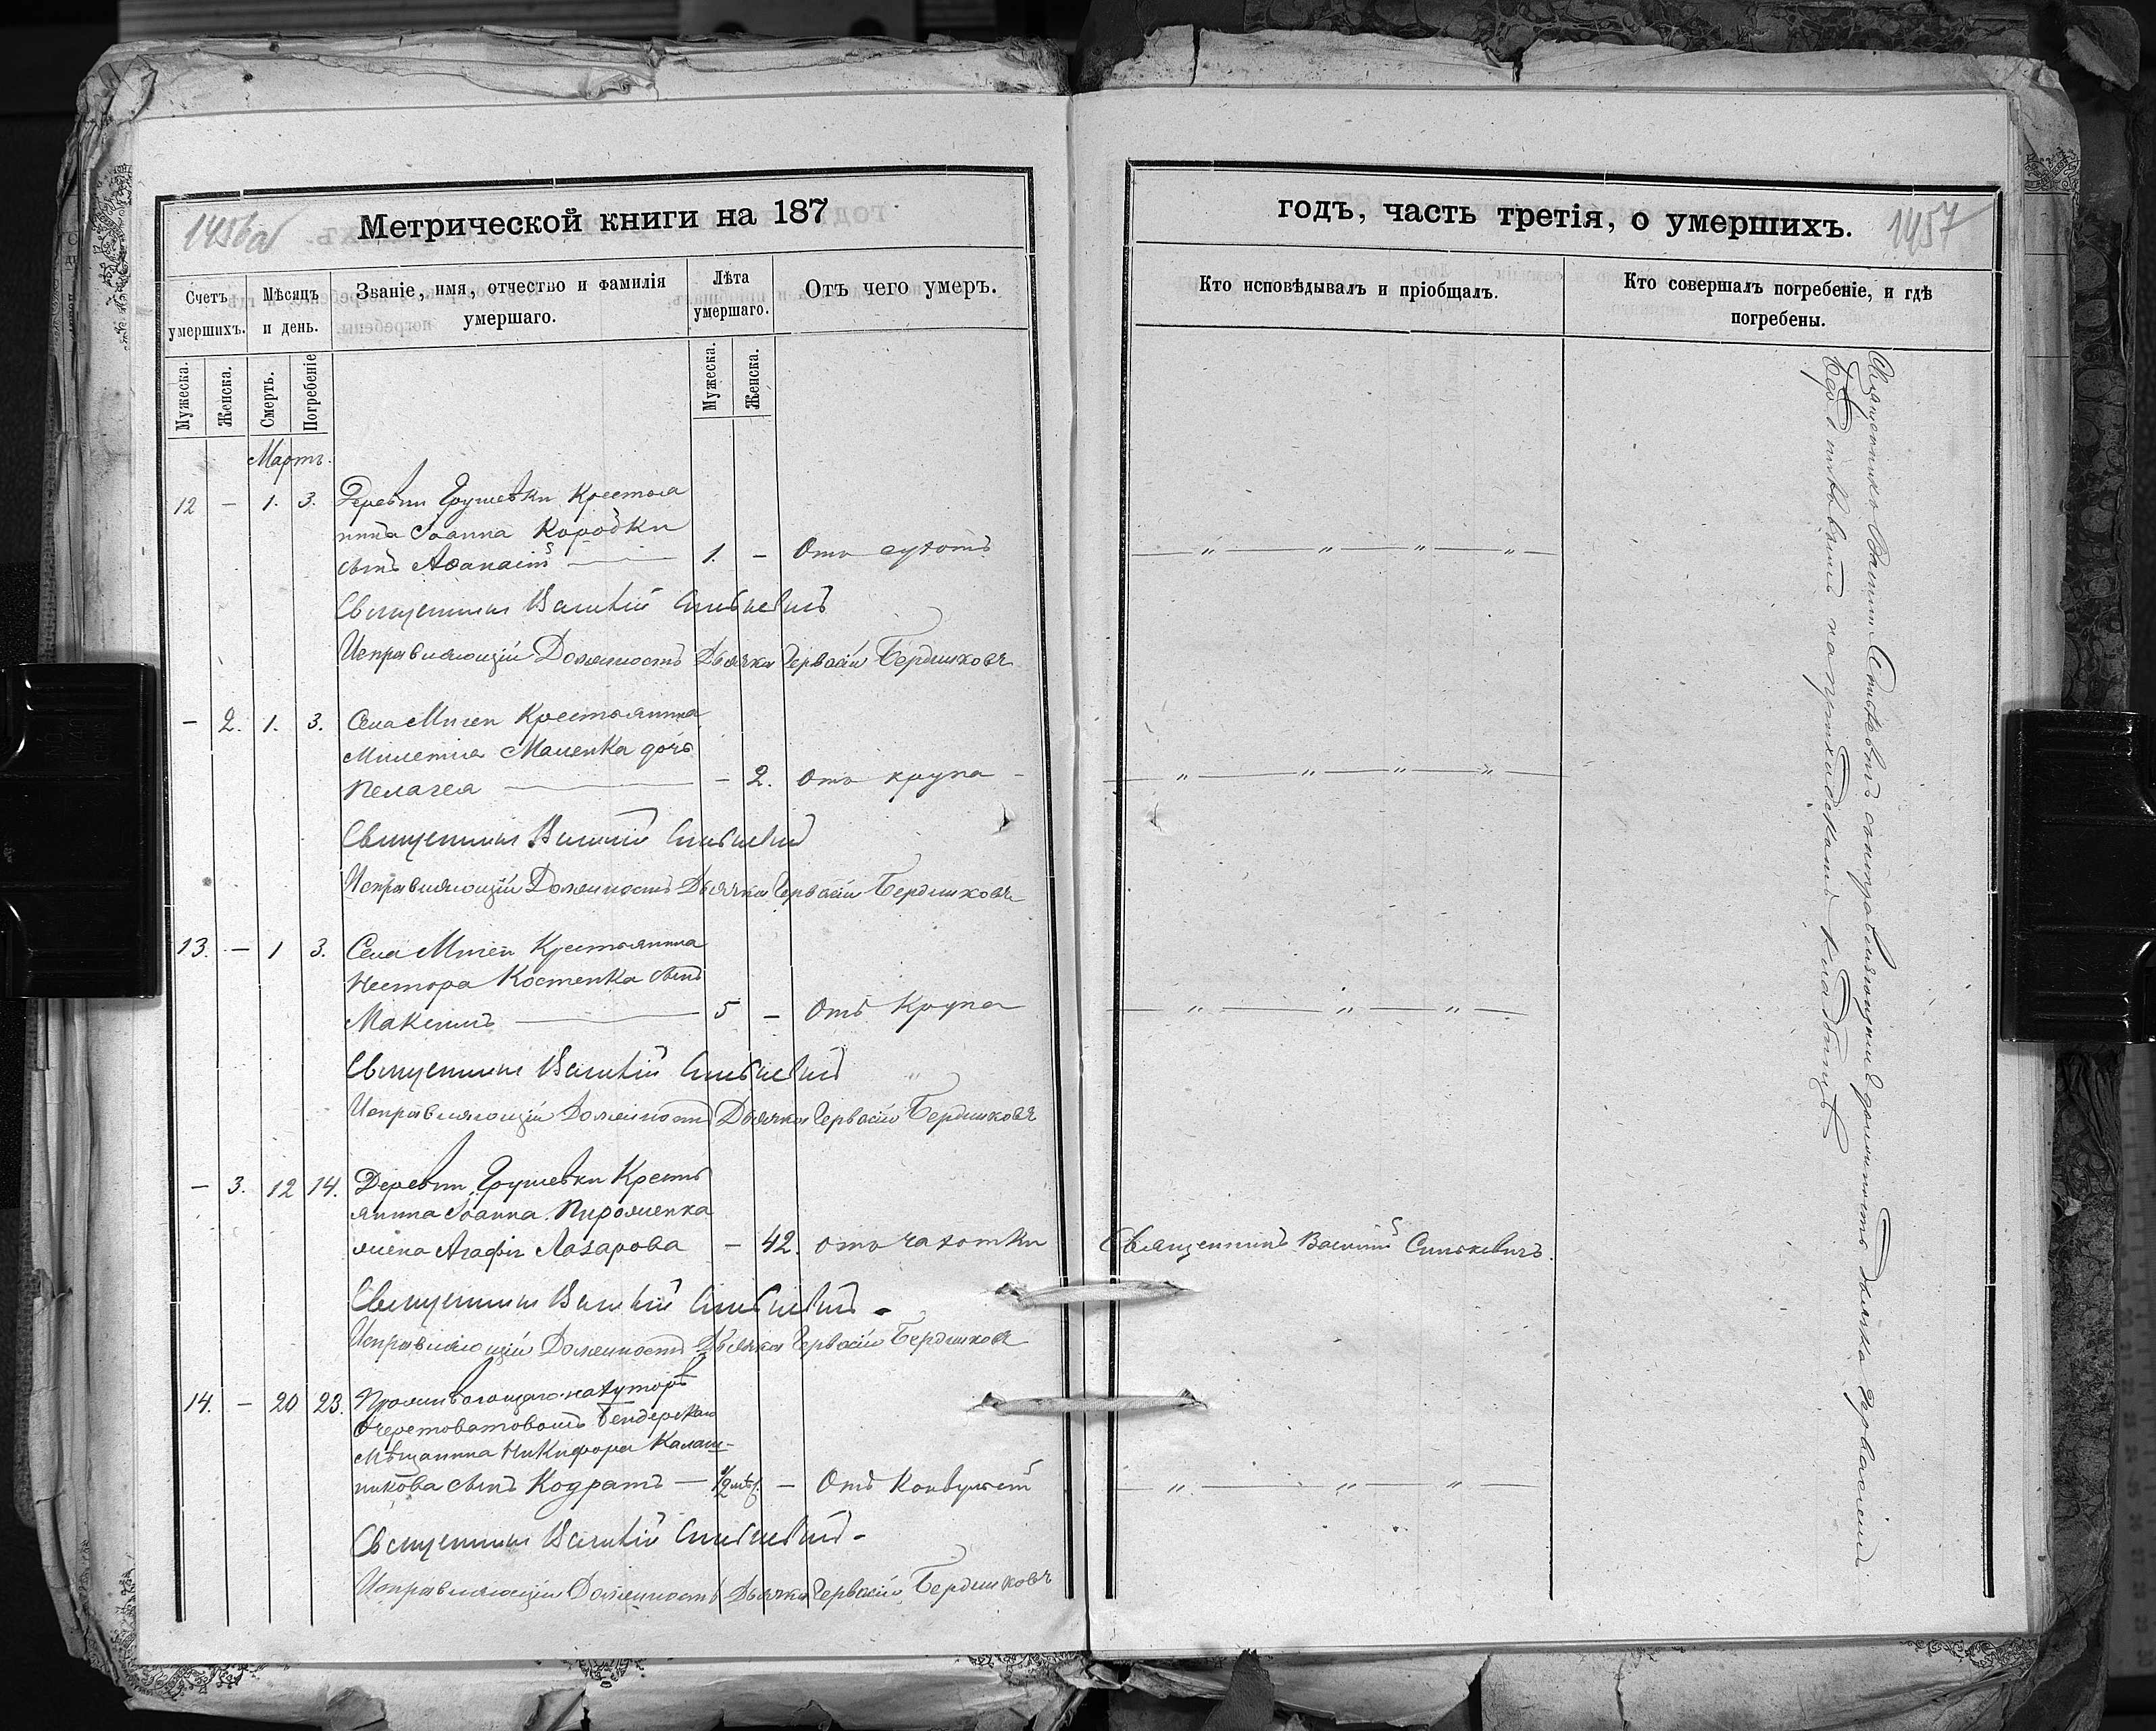 Метрической книги на 187
1456об
Счетъ умершихъ.
Мѣсяцъ и день.
Званіе, имя, отчество и фамилія умершаго.
Лѣта умершаго.
Отъ чего умеръ.
Мужеска.
Женска.
Смерть.
Погребеніе
Мужеска.
Женска.
Мартъ.
12 — 1. 3. Деревни Грушевки Крестья
нина Іоанна Коробки
сынъ Аѳанасій 1. — Отъ сухотъ
Священникъ Василій Синькевичъ
Исправляющій Должность Дьячка Гервасій Бердниковъ
— 2. 1. 3. Села Мигеи Крестьянина
Милетія Маленка дочь
Пелагея — 2. Отъ крупа
Священникъ Василій Синькевичъ
Исправляющій Должность Дьячка Гервасій Бердниковъ
13. — 1 3. Села Мигеи Крестьянина
Нестора Костенка сынъ
Максимъ 5 — Отъ Крупа
Священникъ Василій Синькевичъ
Исправляющій Должность Дьячка Гервасій Бердниковъ
— 3. 12 14. Деревни Грушевки Кресть
янина Іоанна
жена Агафія Лазарова — 42. отъ чахотки
Священникъ Василій Синькевичъ
Исправляющій Должность Дьячка Гервасій Бердниковъ
14. — 20 23. Проживающаго на хуторѣ
Очеретоватомъ Бендерскаго
мѣщанина Никифора Калаш-
никова сынъ Кодратъ — 1/2 — Отъ Конвульсій
Священникъ Василій Синькевичъ
Исправляющій Должность Дьячка Гервасій Бердниковъ
годъ, часть третія, о умершихъ.
1457
Кто исповѣдывалъ и пріобщалъ.
Кто совершалъ погребеніе, и гдѣ погребены.
— „ — „ — „ — „ —
— „ — „ — „ — „ —
— „ — „ — „ —
Священникъ Василій Синькевичъ.
— „ — „ — „ —
Священникъ Василій Синькевичъ съ исправляющимъ должность Дьячка Гервасіемъ
Бердниковымъ на приходскомъ кладбищѣ